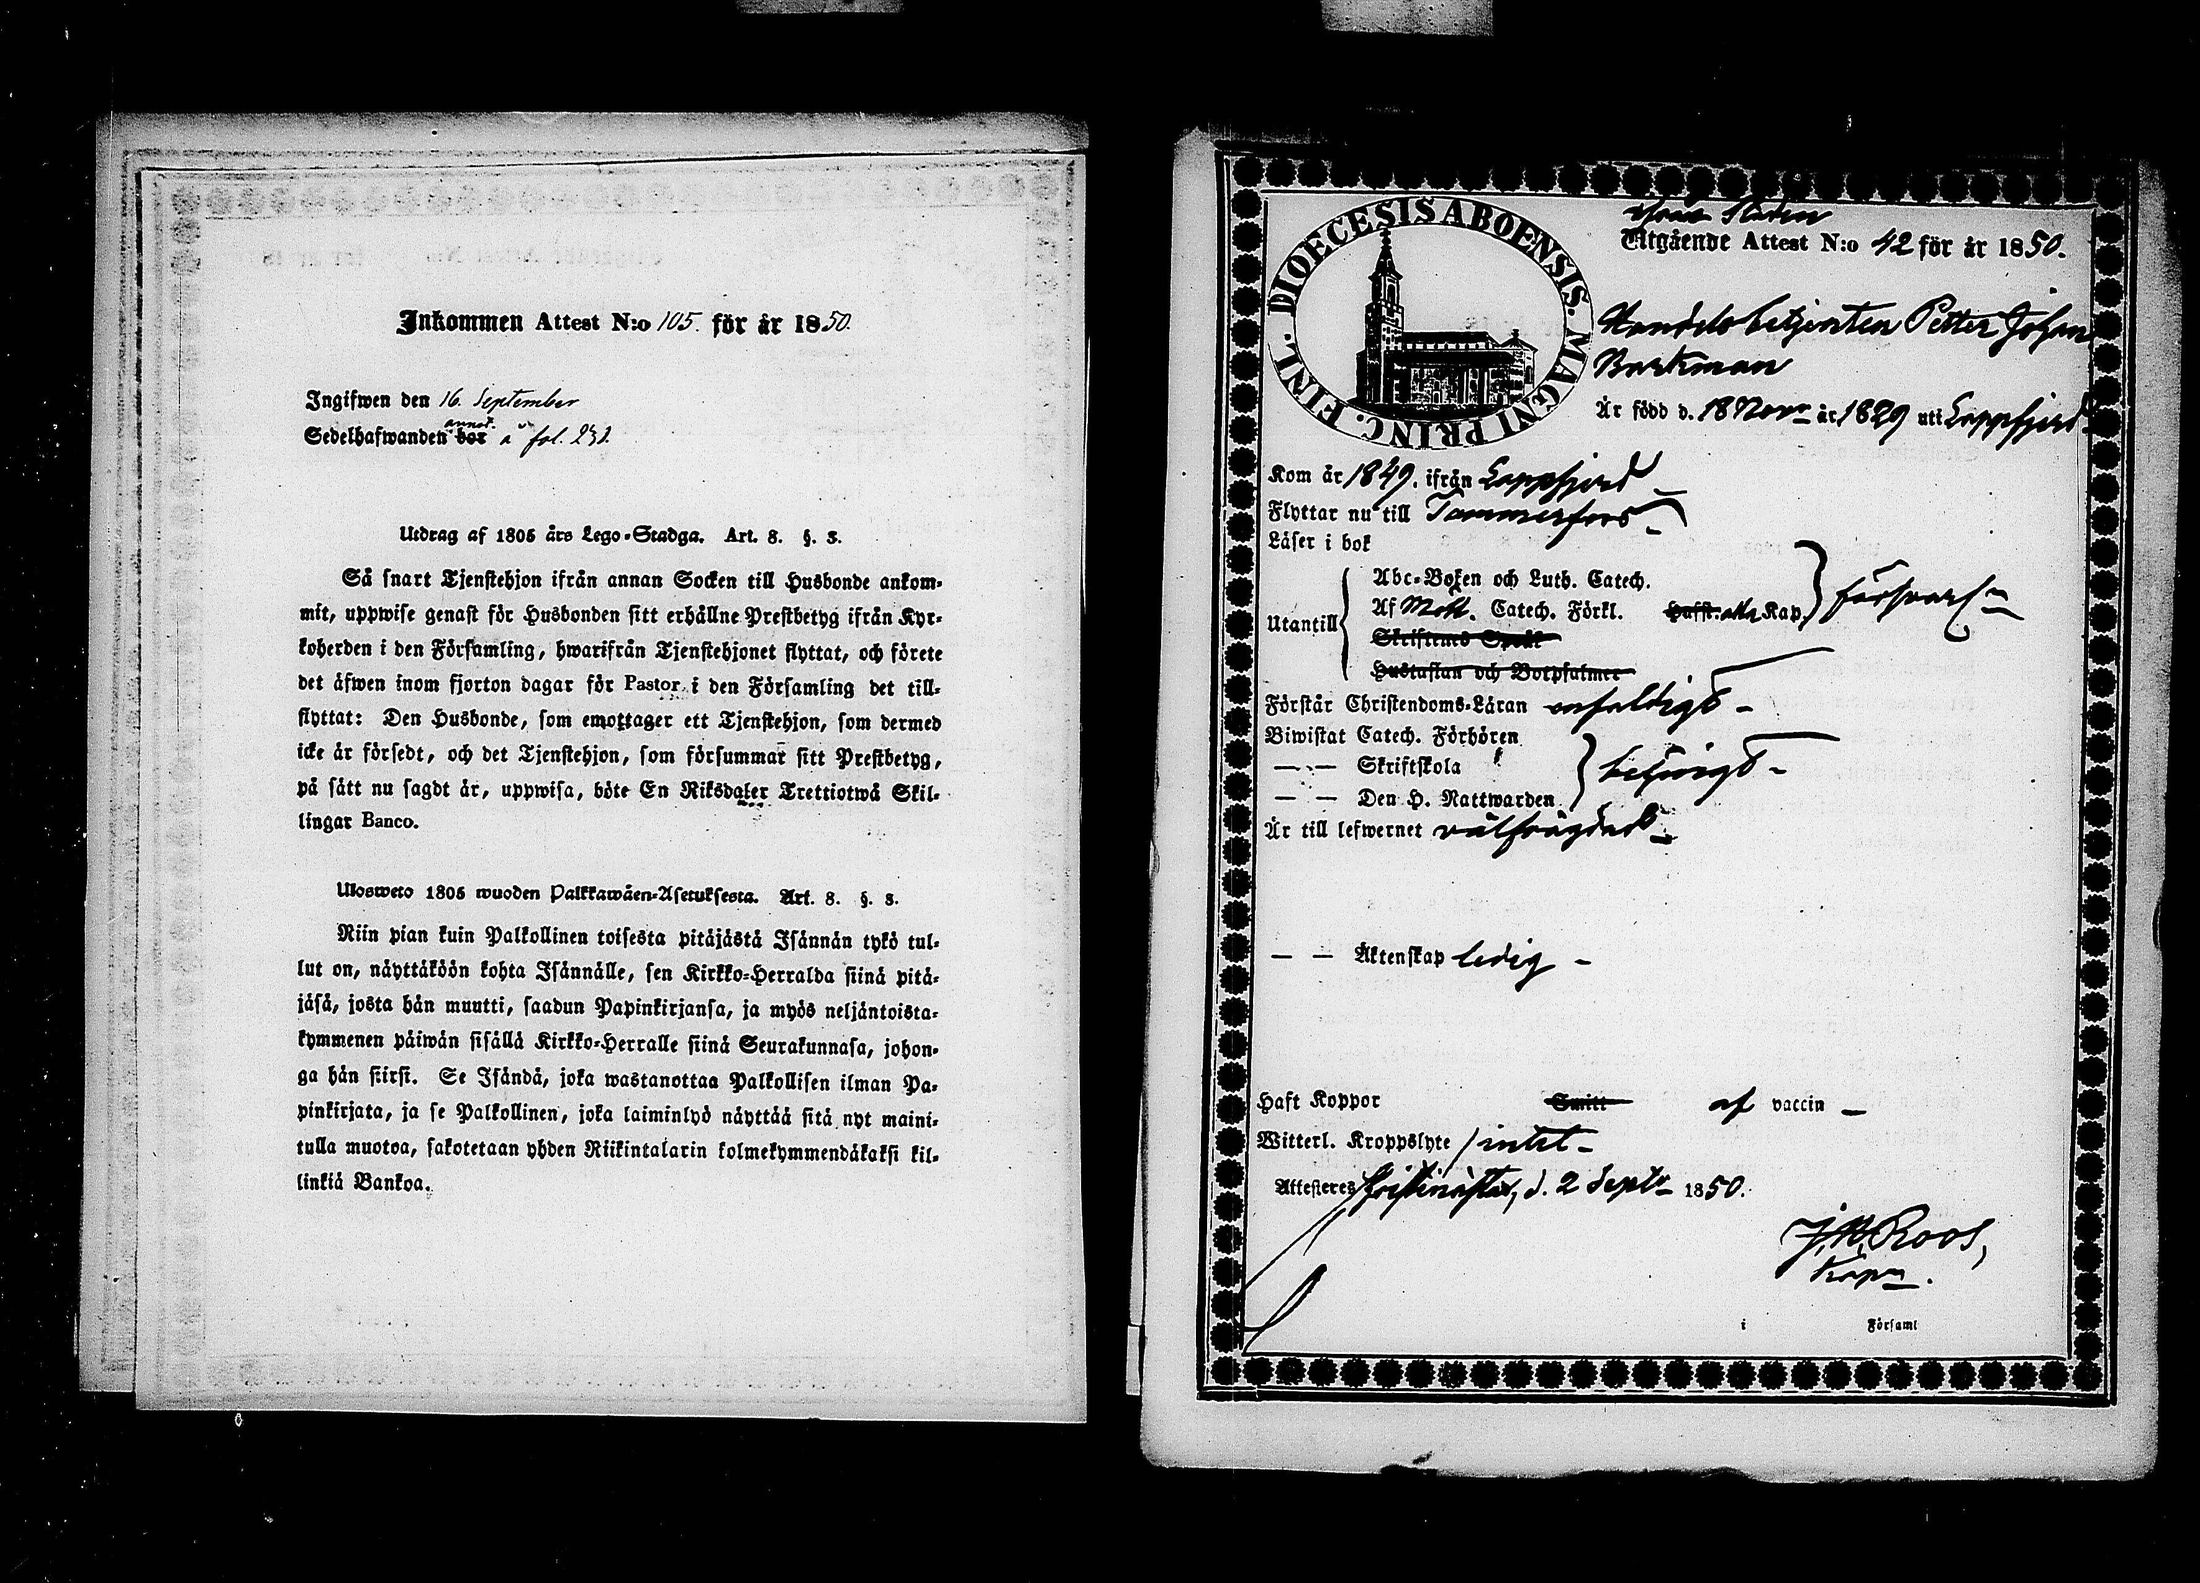 Inkommen Attest N:o 105. för år 1850.
Ingifwen den 16. September
annot.
Sedelhafwanden bor å fol. 232.
Utdrag af 1805 års Lego-Stadga. Art. 8. §. 3.
Så snart Tjenstehjon ifrån annan Socken till Husbonde ankom-
mit, uppwise genast för Husbonden sitt erhållne Prestbetyg ifrån Kyr-
koherden i den Församling, hwarifrån Tjenstehjonet flyttat, och förete
det äfwen inom fjorton dagar för Pastor i den Församling det till-
flyttat: Den Husbonde, som emottager ett Tjenstehjon, som dermed
icke är försedt, och det Tjenstehjon, som försummar sitt Prestbetyg,
på sätt nu sagdt är, uppwisa, böte En Riksdaler Trettiotwå Skil-
lingar Banco.
Ulosweto 1805 wuoden Palkkawäen-Asetuksesta. Art. 8. §. 3.
Niin pian kuin Palkollinen toisesta pitäjästä Isännän tykö tul-
lut on, näyttäköön kohta Isännälle, sen Kirkko-Herralda siinä pitä-
jäsä, josta hän muutti, saadun Papinkirjansa, ja myös neljäntoista-
kymmenen päiwän sisällä Kirkko-Herralle siinä Seurakunnasa, johon-
ga hän siirsi. Se Isändä, joka wastanottaa Palkollisen ilman Pa-
pinkirjata, ja se Palkollinen, joka laiminlyö näyttää sitä nyt maini-
tulla muotoa, sakotetaan yhden Riikintalarin kolmekymmendäkaksi kil-
linkiä Bankoa.
DIOECESIS ABOENSIS. MAGNI PRINC. FINL.
Utgående Attest N:o 42 för år 1850.
Handelsbetjenten Petter Johan
Barkman
Är född d. 18 Novr år 1829 uti Lappfjerd
Kom år 1849. ifrån Lappfjerd
Flyttar nu till Tammerfors
Läser i bok
Abc-Boken och Luth. Catech.
Utantill Af Catech. Förkl. Hafst. Kap. försvarl.
Skriftenes Språk
Hustaflan och Botpsalmer
Förstår Christendoms-Läran enfaldigt
Biwistat Catech. Förhören
— — Skriftskola behörigt
— — Den H. Nattwarden
Är till lefwernet välfrägdad
— — Äktenskap ledig
Haft Koppor Smitt af vaccin
Witterl. Kroppslyte intet
Attesteres Christinæstad, d. 2 Septr 1850.
Roos,
Kapn.
i Församl